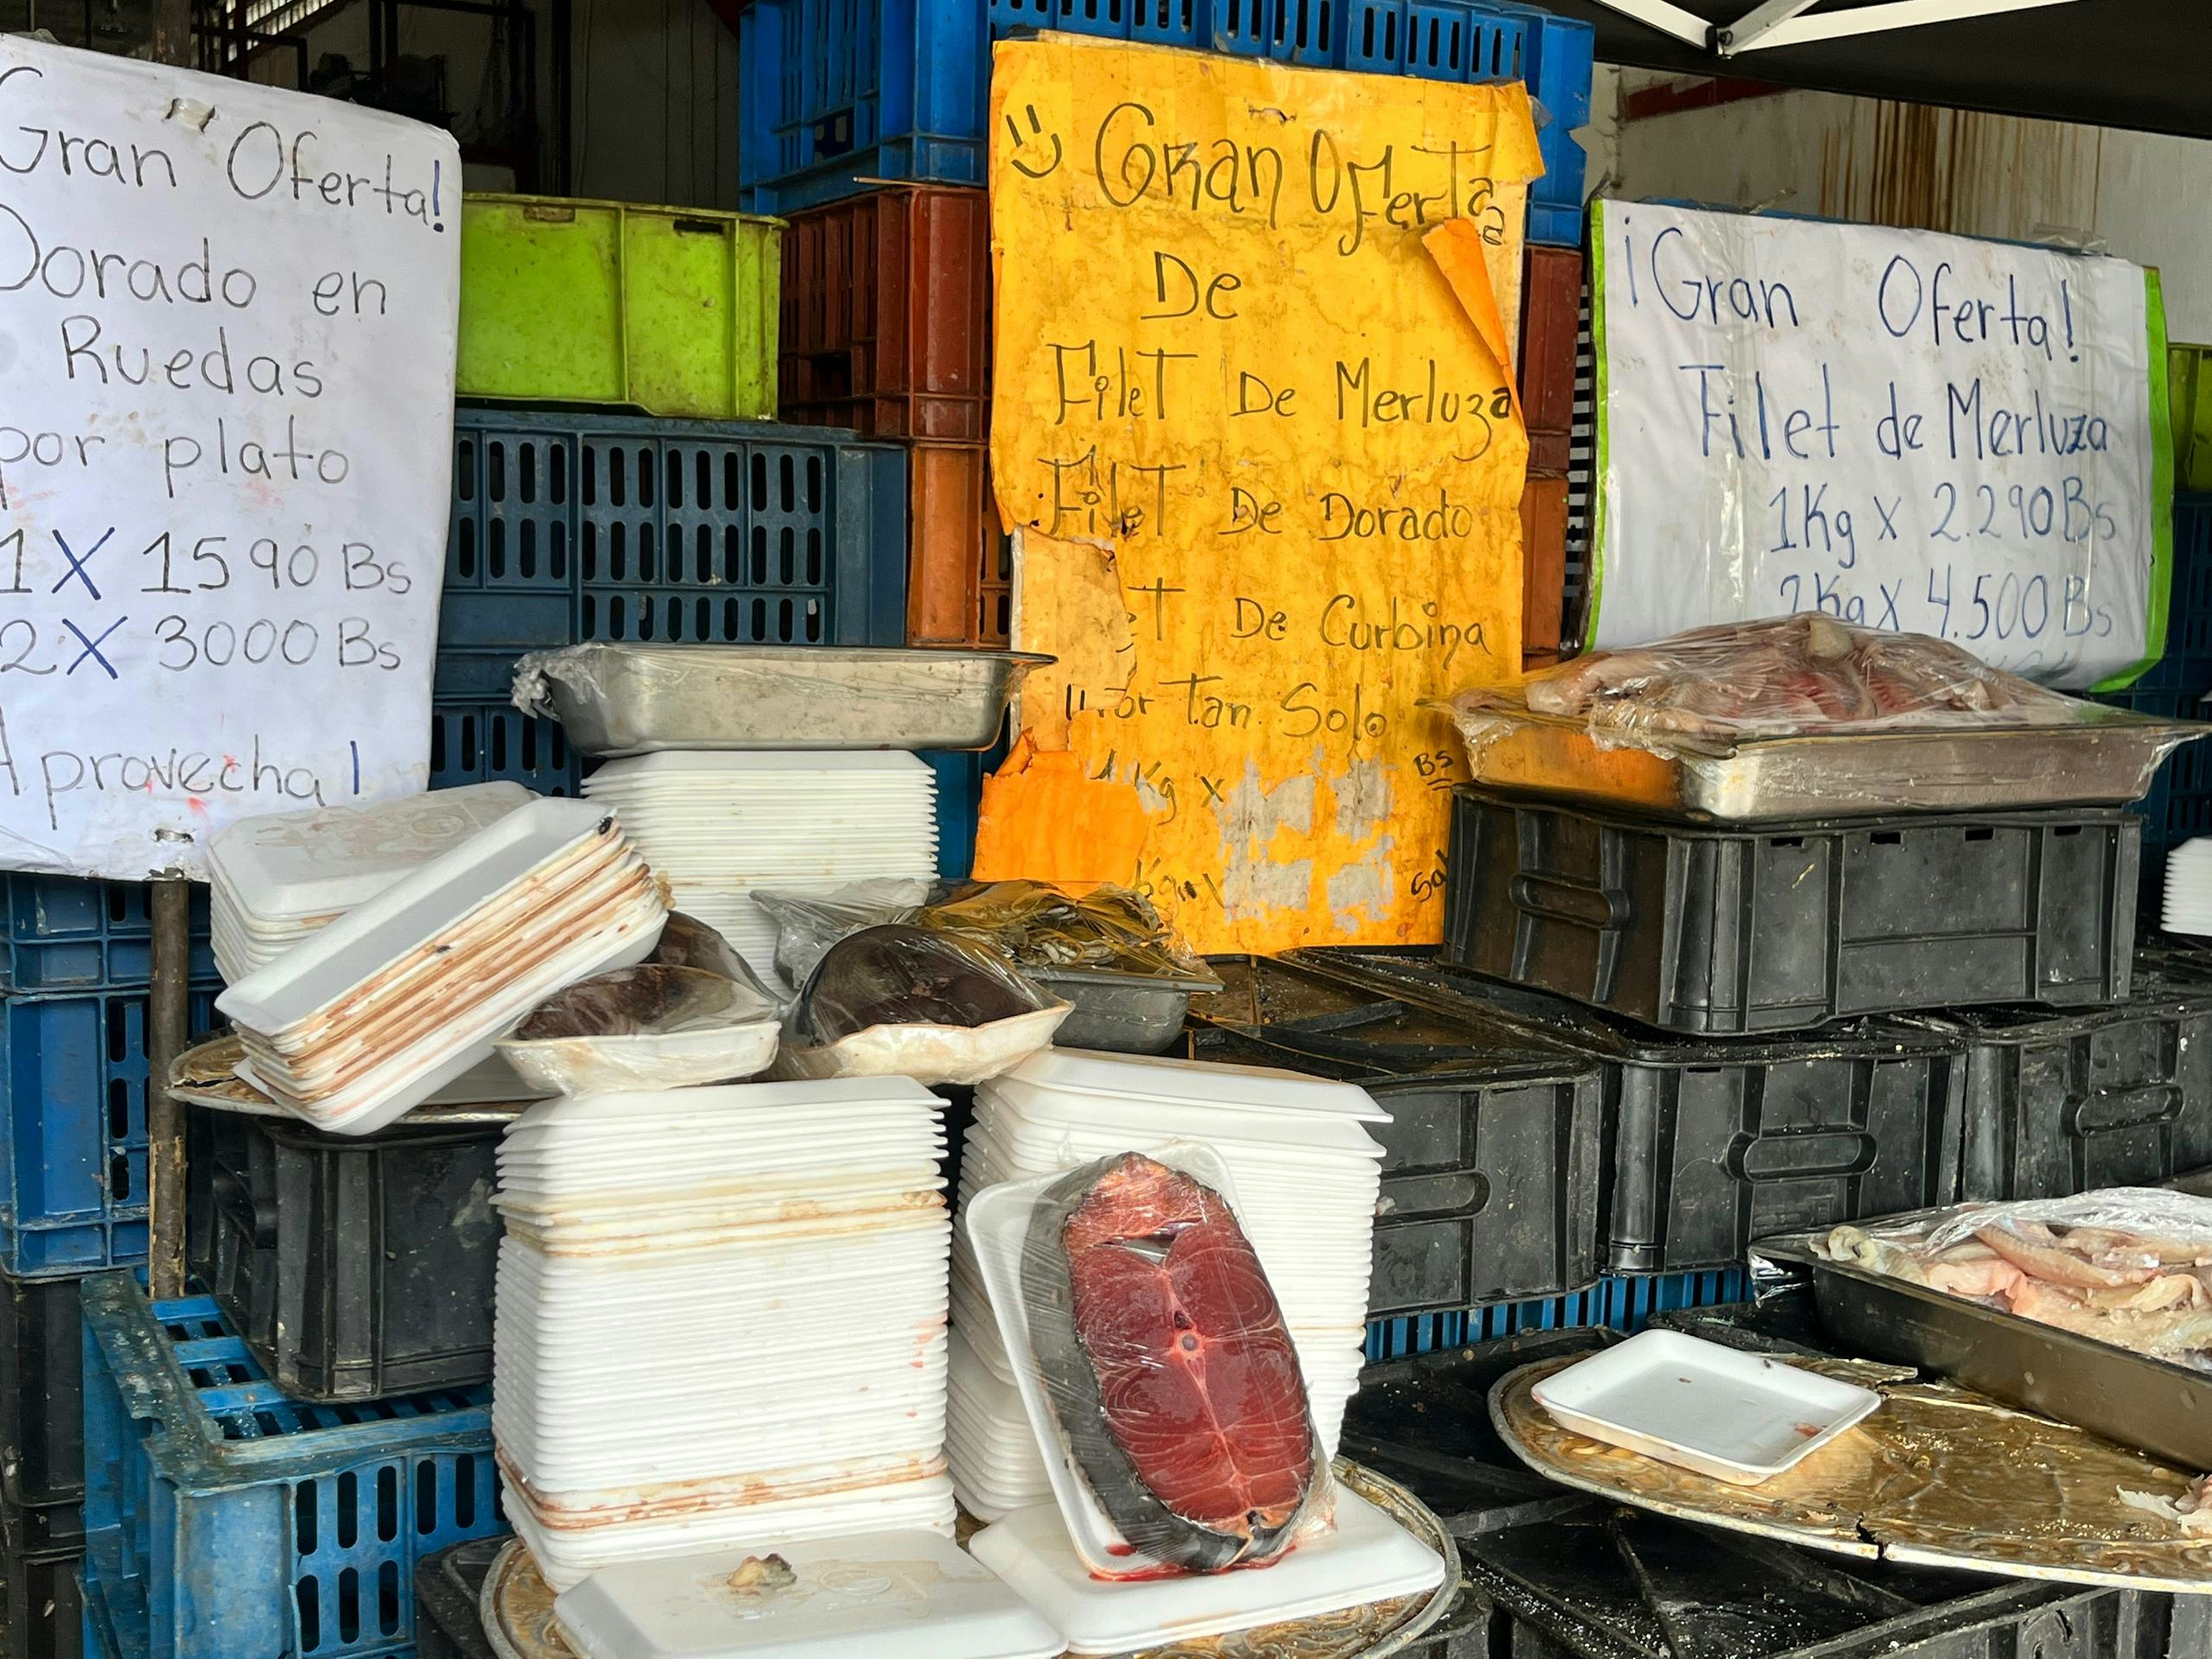 Gran Oferta!
Dorado en
Ruedas
por plato
1X 1590 Bs
2X 3000 Bs
Aprovecha!
Gran Oferta
De
Filet De Merluza
Filet De Dorado
De Curbina
Por Tan Solo
1 Kg x Bs
¡Gran Oferta!
Filet de Merluza
1Kg x 2.290 Bs
2Kg x 4.500 Bs